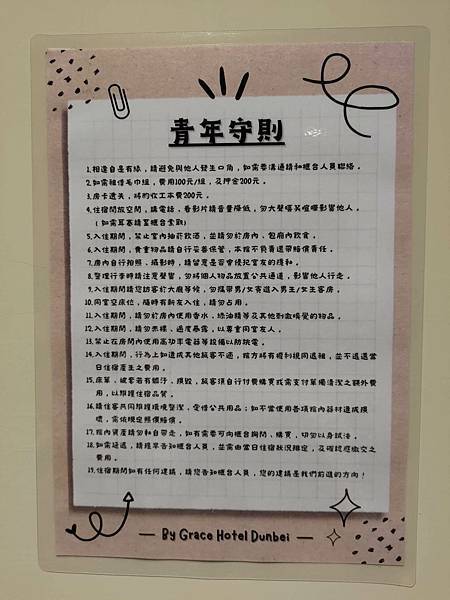 青年守則
1.相逢自是有緣，請避免與他人發生口角，如需要溝通請和櫃台人員聯絡。
2.如需租借毛巾組，費用100元/組，及押金200元。
3.房卡遺失，將酌收工本費200元。
4.住宿開放空間，講電話、看影片請音量降低，勿大聲嘻笑喧嘩影響他人。
（如需耳塞請至櫃台索取）
5.入住期間，禁止室內抽菸飲酒，並請勿於房內、包廂內飲食。
6.入住期間，貴重物品請自行妥善保管，本館不負責遺失賠償責任。
7.房內自行拍照、攝影時，請留意是否會侵犯室友的權利。
8.整理行李時請注意聲響，勿將個人物品放置公共通道，影響他人行走。
9.入住期間請您訪客於大廳等候，勿攜帶男/女賓進入男生/女生客房。
10.同室空床位，隨時有新友入住，請勿占用。
11.入住期間，請勿於房內使用香水、綠油精等及其他刺激嗅覺的物品。
12.入住期間，請勿赤裸、過度暴露，以尊重同室友人。
13.禁止在房間內使用高功率電器等設備以防跳電。
14.入住期間，行為上如造成其他旅客不適，館方將有權利視同退租，並不退還當
日住宿產生之費用。
15.床單、被套若有髒汙、損毀，旅客須自行付費購買或需支付單獨清潔之額外費
用，以維護住宿品質。
16.請住客共同維護環境整潔，愛惜公共用品；如不當使用各項館內器材造成損
壞，需依規定照價賠償。
17.館內資產請勿私自帶走，如有需要可向櫃台詢問、購買，切勿以身試法。
18.如需延退，請提早告知櫃台人員，並需由當日住宿狀況排定，及確認應繳交之
費用。
19.住宿期間如有任何建議，請您告知櫃台人員，您的建議是我們前進的方向！
— By Grace Hotel Dunbei —